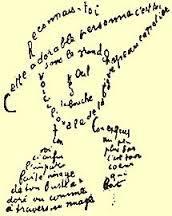 Reconnais-toi
Cette adorable personne c'est toi
Sous le grand chapeau canotier
Œil
Nez
la bouche
Voici l'ovale de ta figure
Ton
Cou exquis
Voi
ci enfin
l'impar
faite image
de ton buste a
doré vu comme
à travers un nuage
un
peu
plus bas
c'est ton
cœur
qui
bat